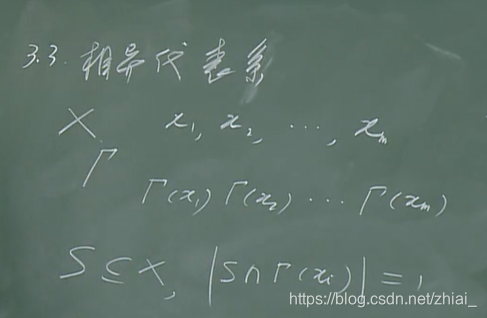 3.3. 相异代表系
X x₁, x₂, ⋯, xₘ
Γ Γ(x₁) Γ(x₂) ⋯ Γ(xₘ)
S ⊆ X, |S∩Γ(xᵢ)| = 1
https://blog.csdn.net/zhiai_